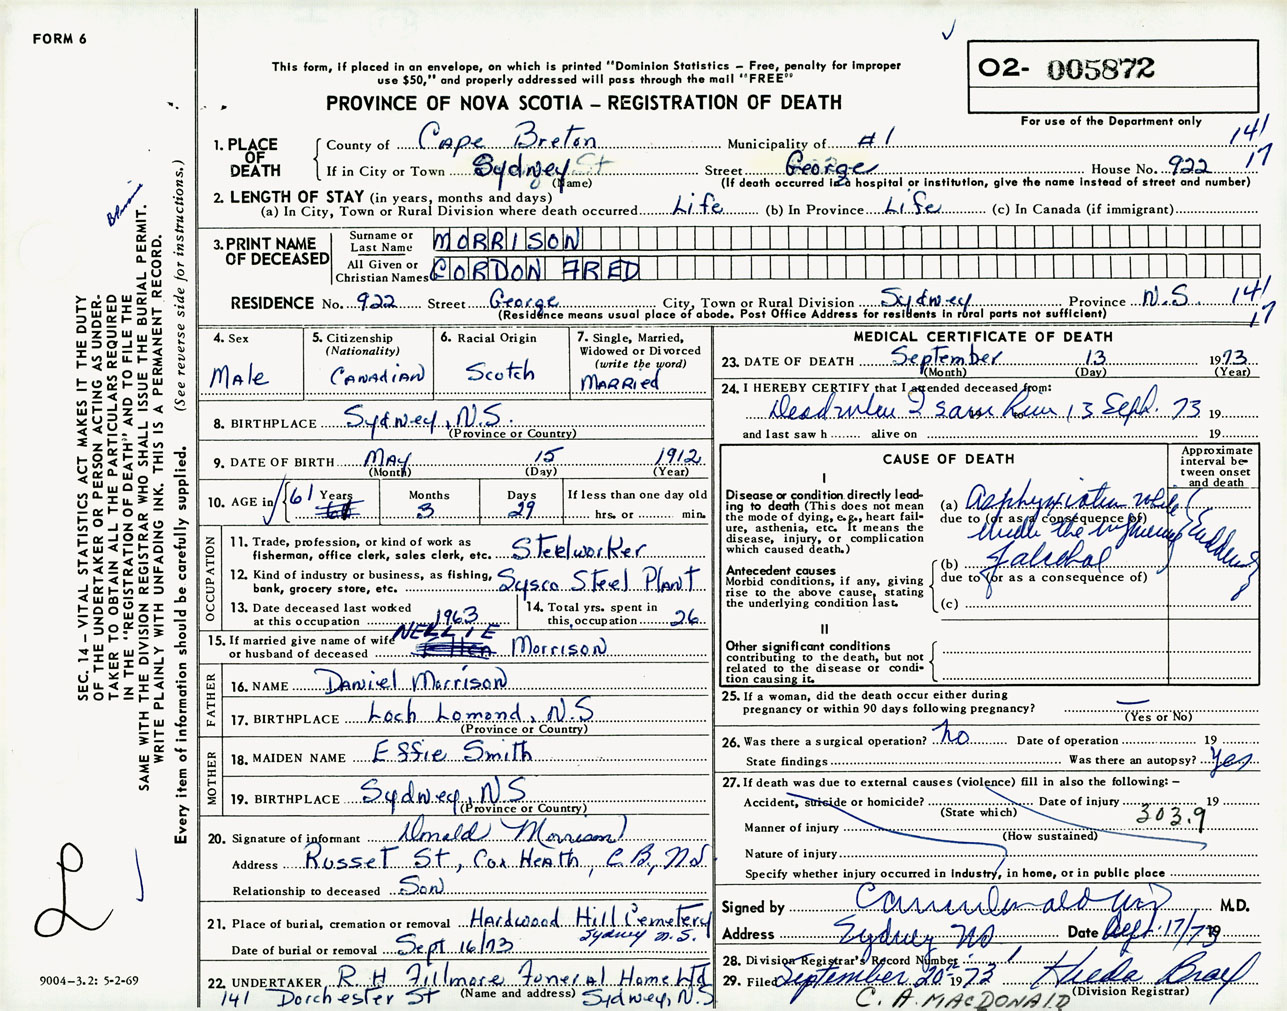 FORM 6
This form, if placed in an envelope, on which is printed "Dominion Statistics – Free, penalty for improper
use $50," and properly addressed will pass through the mail "FREE"
PROVINCE OF NOVA SCOTIA – REGISTRATION OF DEATH
O2- 005872
For use of the Department only
141
17
1. PLACE OF DEATH
County of Cape Breton Municipality of #1
If in City or Town Sydney Street George House No. 922
(Name) (If death occurred in a hospital or institution, give the name instead of street and number)
2. LENGTH OF STAY (in years, months and days)
(a) In City, Town or Rural Division where death occurred Life (b) In Province Life (c) In Canada (if immigrant)
3. PRINT NAME OF DECEASED
Surname or Last Name MORRISON
All Given or Christian Names GORDON FRED
RESIDENCE No. 922 Street George City, Town or Rural Division Sydney Province N.S. 141
(Residence means usual place of abode. Post Office Address for residents in rural parts not sufficient) 17
4. Sex Male
5. Citizenship (Nationality) CANADIAN
6. Racial Origin Scotch
7. Single, Married, Widowed or Divorced (write the word) MARRIED
8. BIRTHPLACE Sydney, N.S.
(Province or Country)
9. DATE OF BIRTH May 15 1912
(Month) (Day) (Year)
10. AGE in 61 Years Months 3 Days 29 If less than one day old hrs. or min.
OCCUPATION
11. Trade, profession, or kind of work as fisherman, office clerk, sales clerk, etc. Steelworker
12. Kind of industry or business, as fishing, bank, grocery store, etc. Sysco Steel Plant
13. Date deceased last worked at this occupation 1963
14. Total yrs. spent in this occupation 26
15. If married give name of wife or husband of deceased NELLIE Morrison
FATHER
16. NAME Daniel Morrison
17. BIRTHPLACE Loch Lomond, N.S
(Province or Country)
MOTHER
18. MAIDEN NAME Effie Smith
19. BIRTHPLACE Sydney, NS
(Province or Country)
20. Signature of informant Donald Morrison
Address Russet St, Cox Heath, C.B, NS
Relationship to deceased Son
21. Place of burial, cremation or removal Hardwood Hill Cemetery
Sydney N.S.
Date of burial or removal Sept 16/73
22. UNDERTAKER R. H Fillmore Funeral Home Ltd
(Name and address)
141 Dorchester St Sydney, N.S
MEDICAL CERTIFICATE OF DEATH
23. DATE OF DEATH September 13 1973
(Month) (Day) (Year)
24. I HEREBY CERTIFY that I attended deceased from:
Dead when I saw him 13 Sept. 73 19
and last saw h alive on 19
CAUSE OF DEATH
Approximate interval between onset and death
I
Disease or condition directly leading to death (This does not mean the mode of dying, e.g., heart failure, asthenia, etc. It means the disease, injury, or complication which caused death.)
(a) Asphyxiation while
due to (or as a consequence of)
under the influence Suddenly
(b) of alcohol
due to (or as a consequence of)
(c)
Antecedent causes
Morbid conditions, if any, giving rise to the above cause, stating the underlying condition last.
II
Other significant conditions
contributing to the death, but not related to the disease or condition causing it.
25. If a woman, did the death occur either during pregnancy or within 90 days following pregnancy? —
(Yes or No)
26. Was there a surgical operation? No Date of operation 19
State findings Was there an autopsy? Yes
27. If death was due to external causes (violence) fill in also the following: –
Accident, suicide or homicide? Date of injury 19
(State which) 303.9
Manner of injury
(How sustained)
Nature of injury
Specify whether injury occurred in Industry, in home, or in public place
Signed by M.D.
Address Sydney NS Date Sept. 17/73 19
28. Division Registrar's Record Number
29. Filed September 20 1973
(Division Registrar)
C. A. MACDONALD
SEC. 14 – VITAL STATISTICS ACT MAKES IT THE DUTY
OF THE UNDERTAKER OR PERSON ACTING AS UNDER-
TAKER TO OBTAIN ALL THE PARTICULARS REQUIRED
IN THE "REGISTRATION OF DEATH" AND TO FILE THE
SAME WITH THE DIVISION REGISTRAR WHO SHALL ISSUE THE BURIAL PERMIT.
WRITE PLAINLY WITH UNFADING INK. THIS IS A PERMANENT RECORD.
Every item of information should be carefully supplied. (See reverse side for instructions.)
L
9004–3.2: 5-2-69